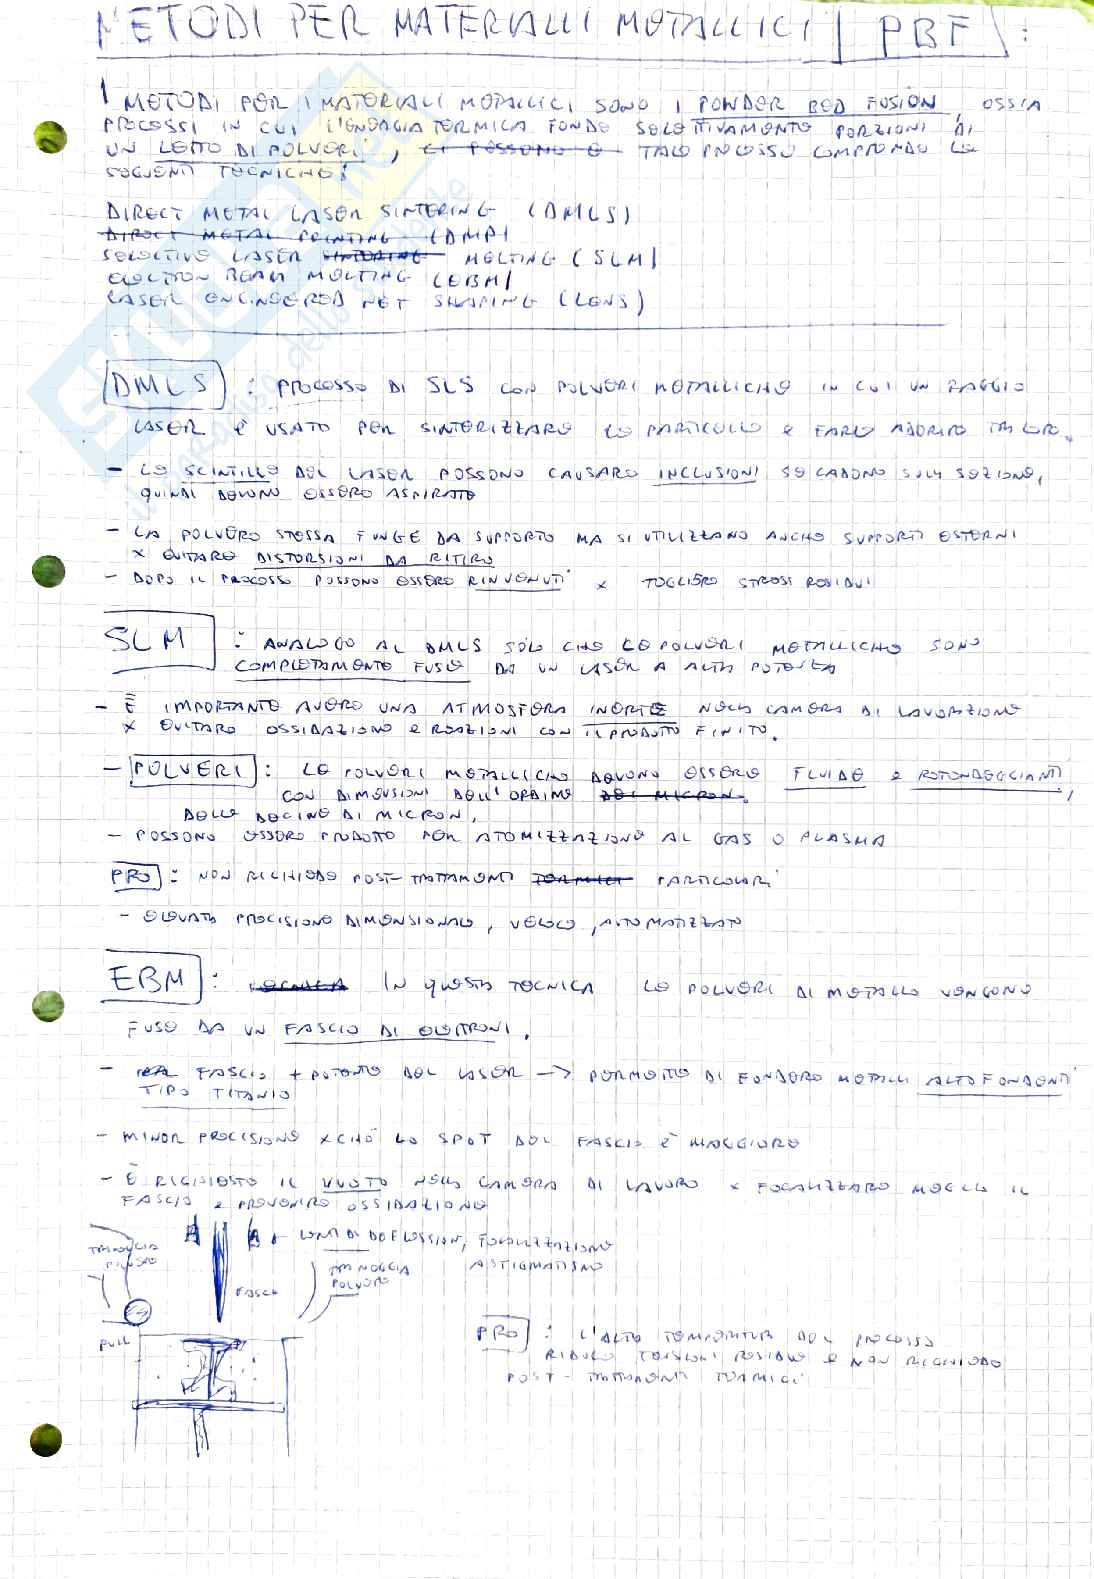 METODI PER MATERIALI METALLICI | PBF | :
I METODI PER I MATERIALI METALLICI SONO I POWDER BED FUSION, OSSIA
PROCESSI IN CUI L'ENERGIA TERMICA FONDE SELETTIVAMENTE PORZIONI DI
UN LETTO DI POLVERI, CI POSSONO E TALE PROCESSO COMPRENDE LE
SEGUENTI TECNICHE:
DIRECT METAL LASER SINTERING (DMLS)
DIRECT METAL PRINTING (DMP)
SELECTIVE LASER SINTERING MELTING (SLM)
ELECTRON BEAM MELTING (EBM)
LASER ENGINEERED NET SHAPING (LENS)
DMLS : PROCESSO DI SLS CON POLVERI METALLICHE IN CUI UN RAGGIO
LASER È USATO PER SINTERIZZARE LE PARTICELLE E FARLE ADERIRE TRA LORO.
- LE SCINTILLE DEL LASER POSSONO CAUSARE INCLUSIONI SE CADONO SULLA SEZIONE,
QUINDI DEVONO ESSERE ASPIRATE
- LA POLVERE STESSA FUNGE DA SUPPORTO MA SI UTILIZZANO ANCHE SUPPORTI ESTERNI
X EVITARE DISTORSIONI DA RITIRO
- DOPO IL PROCESSO POSSONO ESSERE RINVENUTI X TOGLIERE STRESS RESIDUI
SLM : ANALOGO AL DMLS SOLO CHE LE POLVERI METALLICHE SONO
COMPLETAMENTE FUSE DA UN LASER A ALTA POTENZA
- È IMPORTANTE AVERE UNA ATMOSFERA INERTE NELLA CAMERA DI LAVORAZIONE
X EVITARE OSSIDAZIONE E REAZIONI CON IL PRODOTTO FINITO.
- POLVERI : LE POLVERI METALLICHE DEVONO ESSERE FLUIDE E ROTONDEGGIANTI,
CON DIMENSIONI DELL'ORDINE DEI MICRON.
DELLE DECINE DI MICRON,
- POSSONO ESSERE PRODOTTE PER ATOMIZZAZIONE AL GAS O PLASMA
PRO : NON RICHIEDE POST-TRATTAMENTI TERMICI PARTICOLARI
- ELEVATA PRECISIONE DIMENSIONALE, VELOCE, AUTOMATIZZATO
EBM : TECNICA IN QUESTA TECNICA LE POLVERI DI METALLO VENGONO
FUSE DA UN FASCIO DI ELETTRONI.
- FASCIO + POTENTE DEL LASER → PERMETTE DI FONDERE METALLI ALTOFONDENTI
TIPO TITANIO
- MINOR PRECISIONE XCHÈ LO SPOT DEL FASCIO È MAGGIORE
- È RICHIESTO IL VUOTO NELLA CAMERA DI LAVORO X FOCALIZZARE MEGLIO IL
FASCIO E PREVENIRE OSSIDAZIONE
LENTI DI DEFLESSION, FOCALIZZAZIONE
ASTIGMATISMO
TRAMOGGIA
POLVERE
TRAMOGGIA
POLVERE
FASCIO
RULL
PRO : L'ALTA TEMPERATURA DEL PROCESSO
RIDUCE TENSIONI RESIDUE E NON RICHIEDE
POST-TRATTAMENTI TERMICI